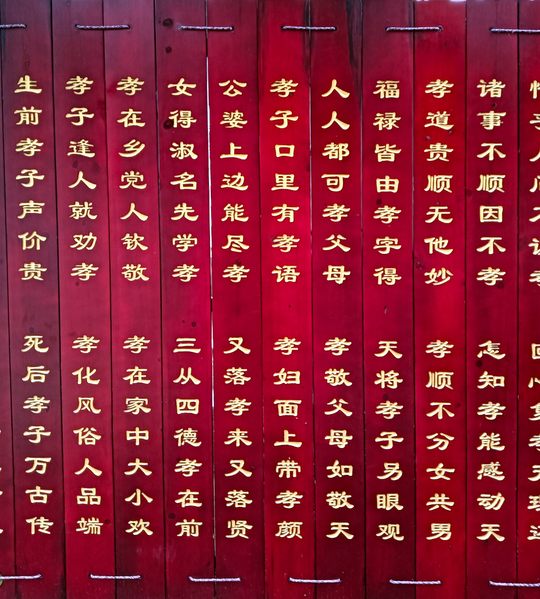 诸事不顺因不孝 怎知孝能感动天
孝道贵顺无他妙 孝顺不分女共男
福禄皆由孝字得 天将孝子另眼观
人人都可孝父母 孝敬父母如敬天
孝子口里有孝语 孝妇面上带孝颜
公婆上边能尽孝 又落孝来又落贤
女得淑名先学孝 三从四德孝在前
孝在乡党人钦敬 孝在家中大小欢
孝子逢人就劝孝 孝化风俗人品端
生前孝子声价贵 死后孝子万古传